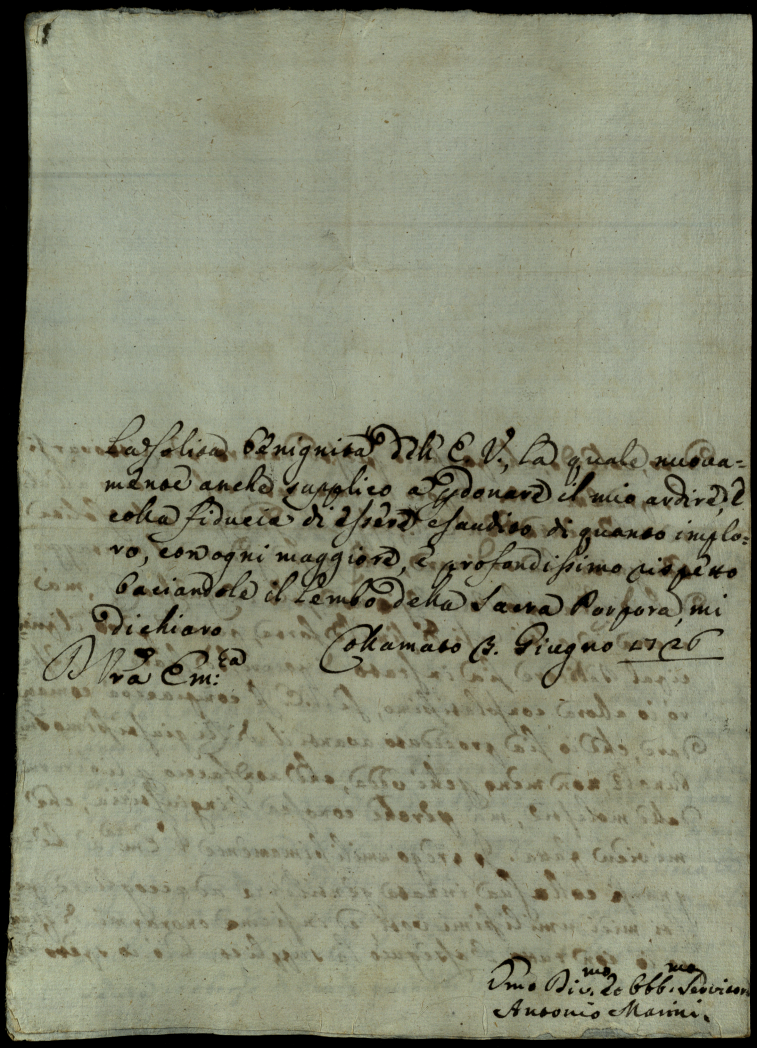 la solita benignità dell' E. V., la quale nuova=
mente anche supplico a p donare il mio ardire, e
colla fiducia di essere esaudito di quanto implo=
ro, con ogni maggiore, e profondissimo rispetto
baciandole il lembo della Sacra Porpora, mi
dichiaro
Collamato 3. Giugno 1726
D V.ra Em:za
Umo Div.mo et Obb.mo Servitore
Antonio Marini.